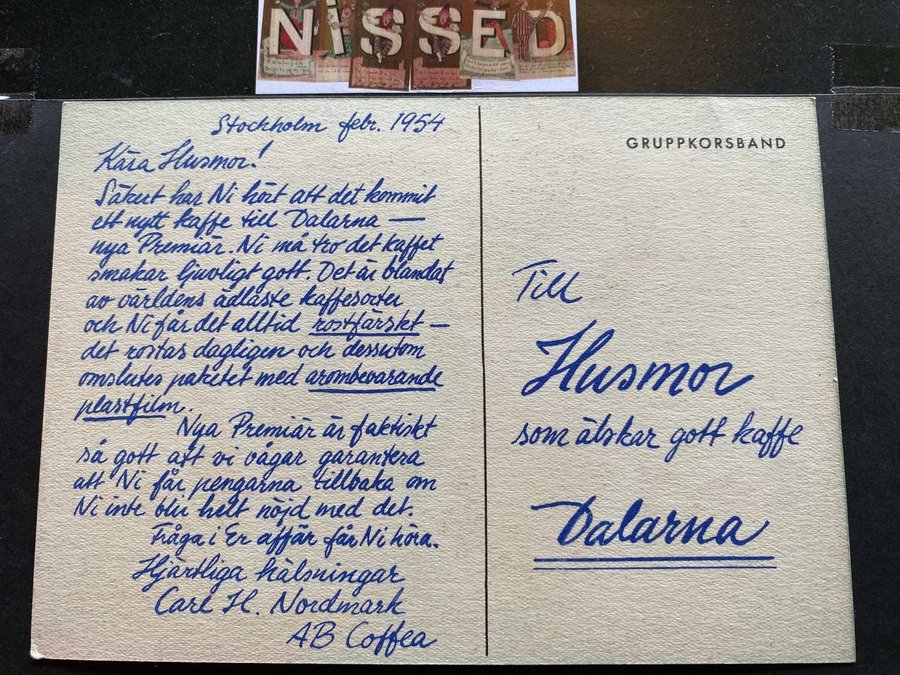 NISSED
Stockholm febr. 1954
Kära Husmor!
Säkert har Ni hört att det kommit
ett nytt kaffe till Dalarna —
nya Premiär. Ni må tro det kaffet
smakar ljuvligt gott. Det är blandat
av världens ädlaste kaffesorter
och Ni får det alltid rostfärskt —
det rostas dagligen och dessutom
omslutes paketet med arombevarande
plastfilm.
Nya Premiär är faktiskt
så gott att vi vågar garantera
att Ni får pengarna tillbaka om
Ni inte blir helt nöjd med det.
Fråga i Er affär får Ni höra.
Hjärtliga hälsningar
Carl H. Nordmark
AB Coffea
GRUPPKORSBAND
Till
Husmor
som älskar gott kaffe
Dalarna